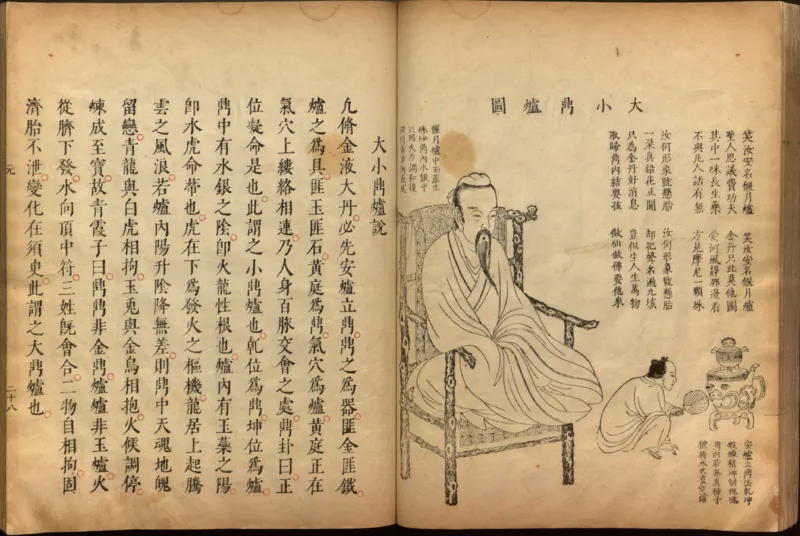 大小鼎爐圖
笑汝安名偃月爐
聖人思議費功夫
其中一味長生藥
不與凡人話有無
笑汝安名偃月爐
金丹只此莫他圖
愛河風靜那邊看
方見摩尼一顆珠
汝何形象號懸胎
一朵真鉛花正開
只為金丹好消息
取歸鼎內結嬰孩
汝何形象號懸胎
却把聲名遍九垓
豈似生人生萬物
做仙做佛要他來
安爐立鼎法乾坤
煅煉精神制魄魂
鼎內若無真種子
猶將水火煮空鐺
偃月爐中玉蘂生
硃砂鼎內水銀平
只因火力調和後
大小鼎爐說
凢脩金液大丹必先安爐立鼎鼎之爲器匪金匪鐵
爐之爲具匪玉匪石黃庭爲鼎氣穴爲爐黃庭正在
氣穴上縷絡相連乃人身百脉交會之處鼎卦曰正
位凝命是也此謂之小鼎爐也乹位爲鼎坤位爲爐
鼎中有水銀之陰卽火龍性根也爐內有玉蘂之陽
卽水虎命蒂也虎在下爲發火之樞機龍居上起騰
雲之風浪若爐內陽升陰降無差則鼎中天魂地魄
留戀青龍與白虎相拘玉兎與金烏相抱火候調停
煉成至寶故青霞子曰鼎鼎非金鼎爐爐非玉爐火
從臍下發水向頂中符三姓旣會合二物自相拘固
濟胎不泄變化在須臾此謂之大鼎爐也
元
二十八